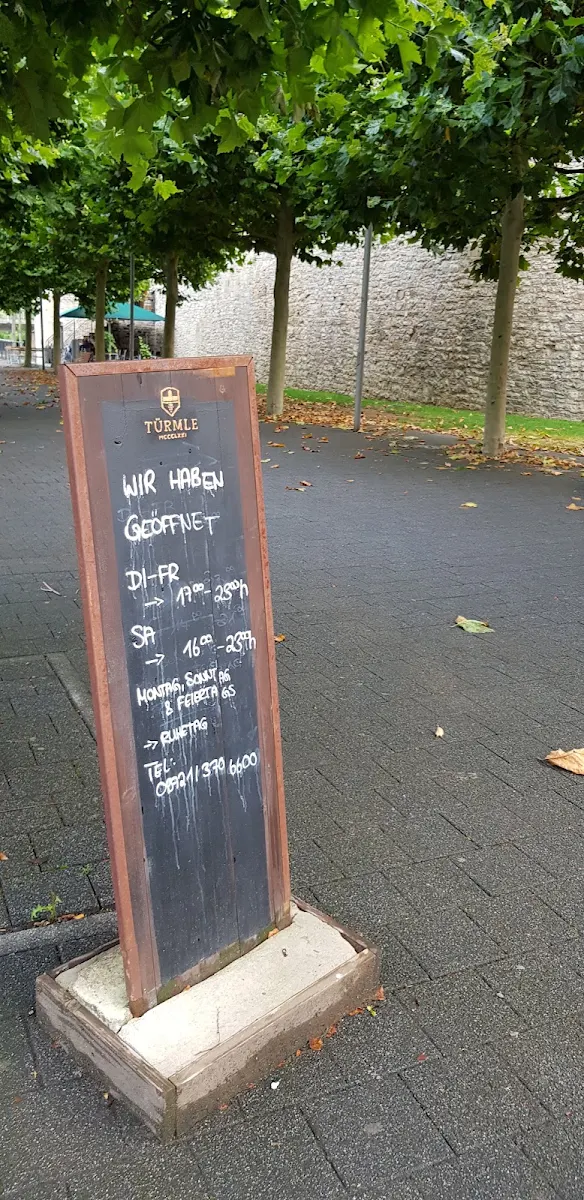 TÜRMLE
WIR HABEN
GEÖFFNET
DI-FR
→ 17⁰⁰-23⁰⁰h
SA
→ 16⁰⁰-23⁰⁰h
MONTAG, SONNTAG
& FEIERTAGS
→ RUHETAG
TEL:
06721/370 6600